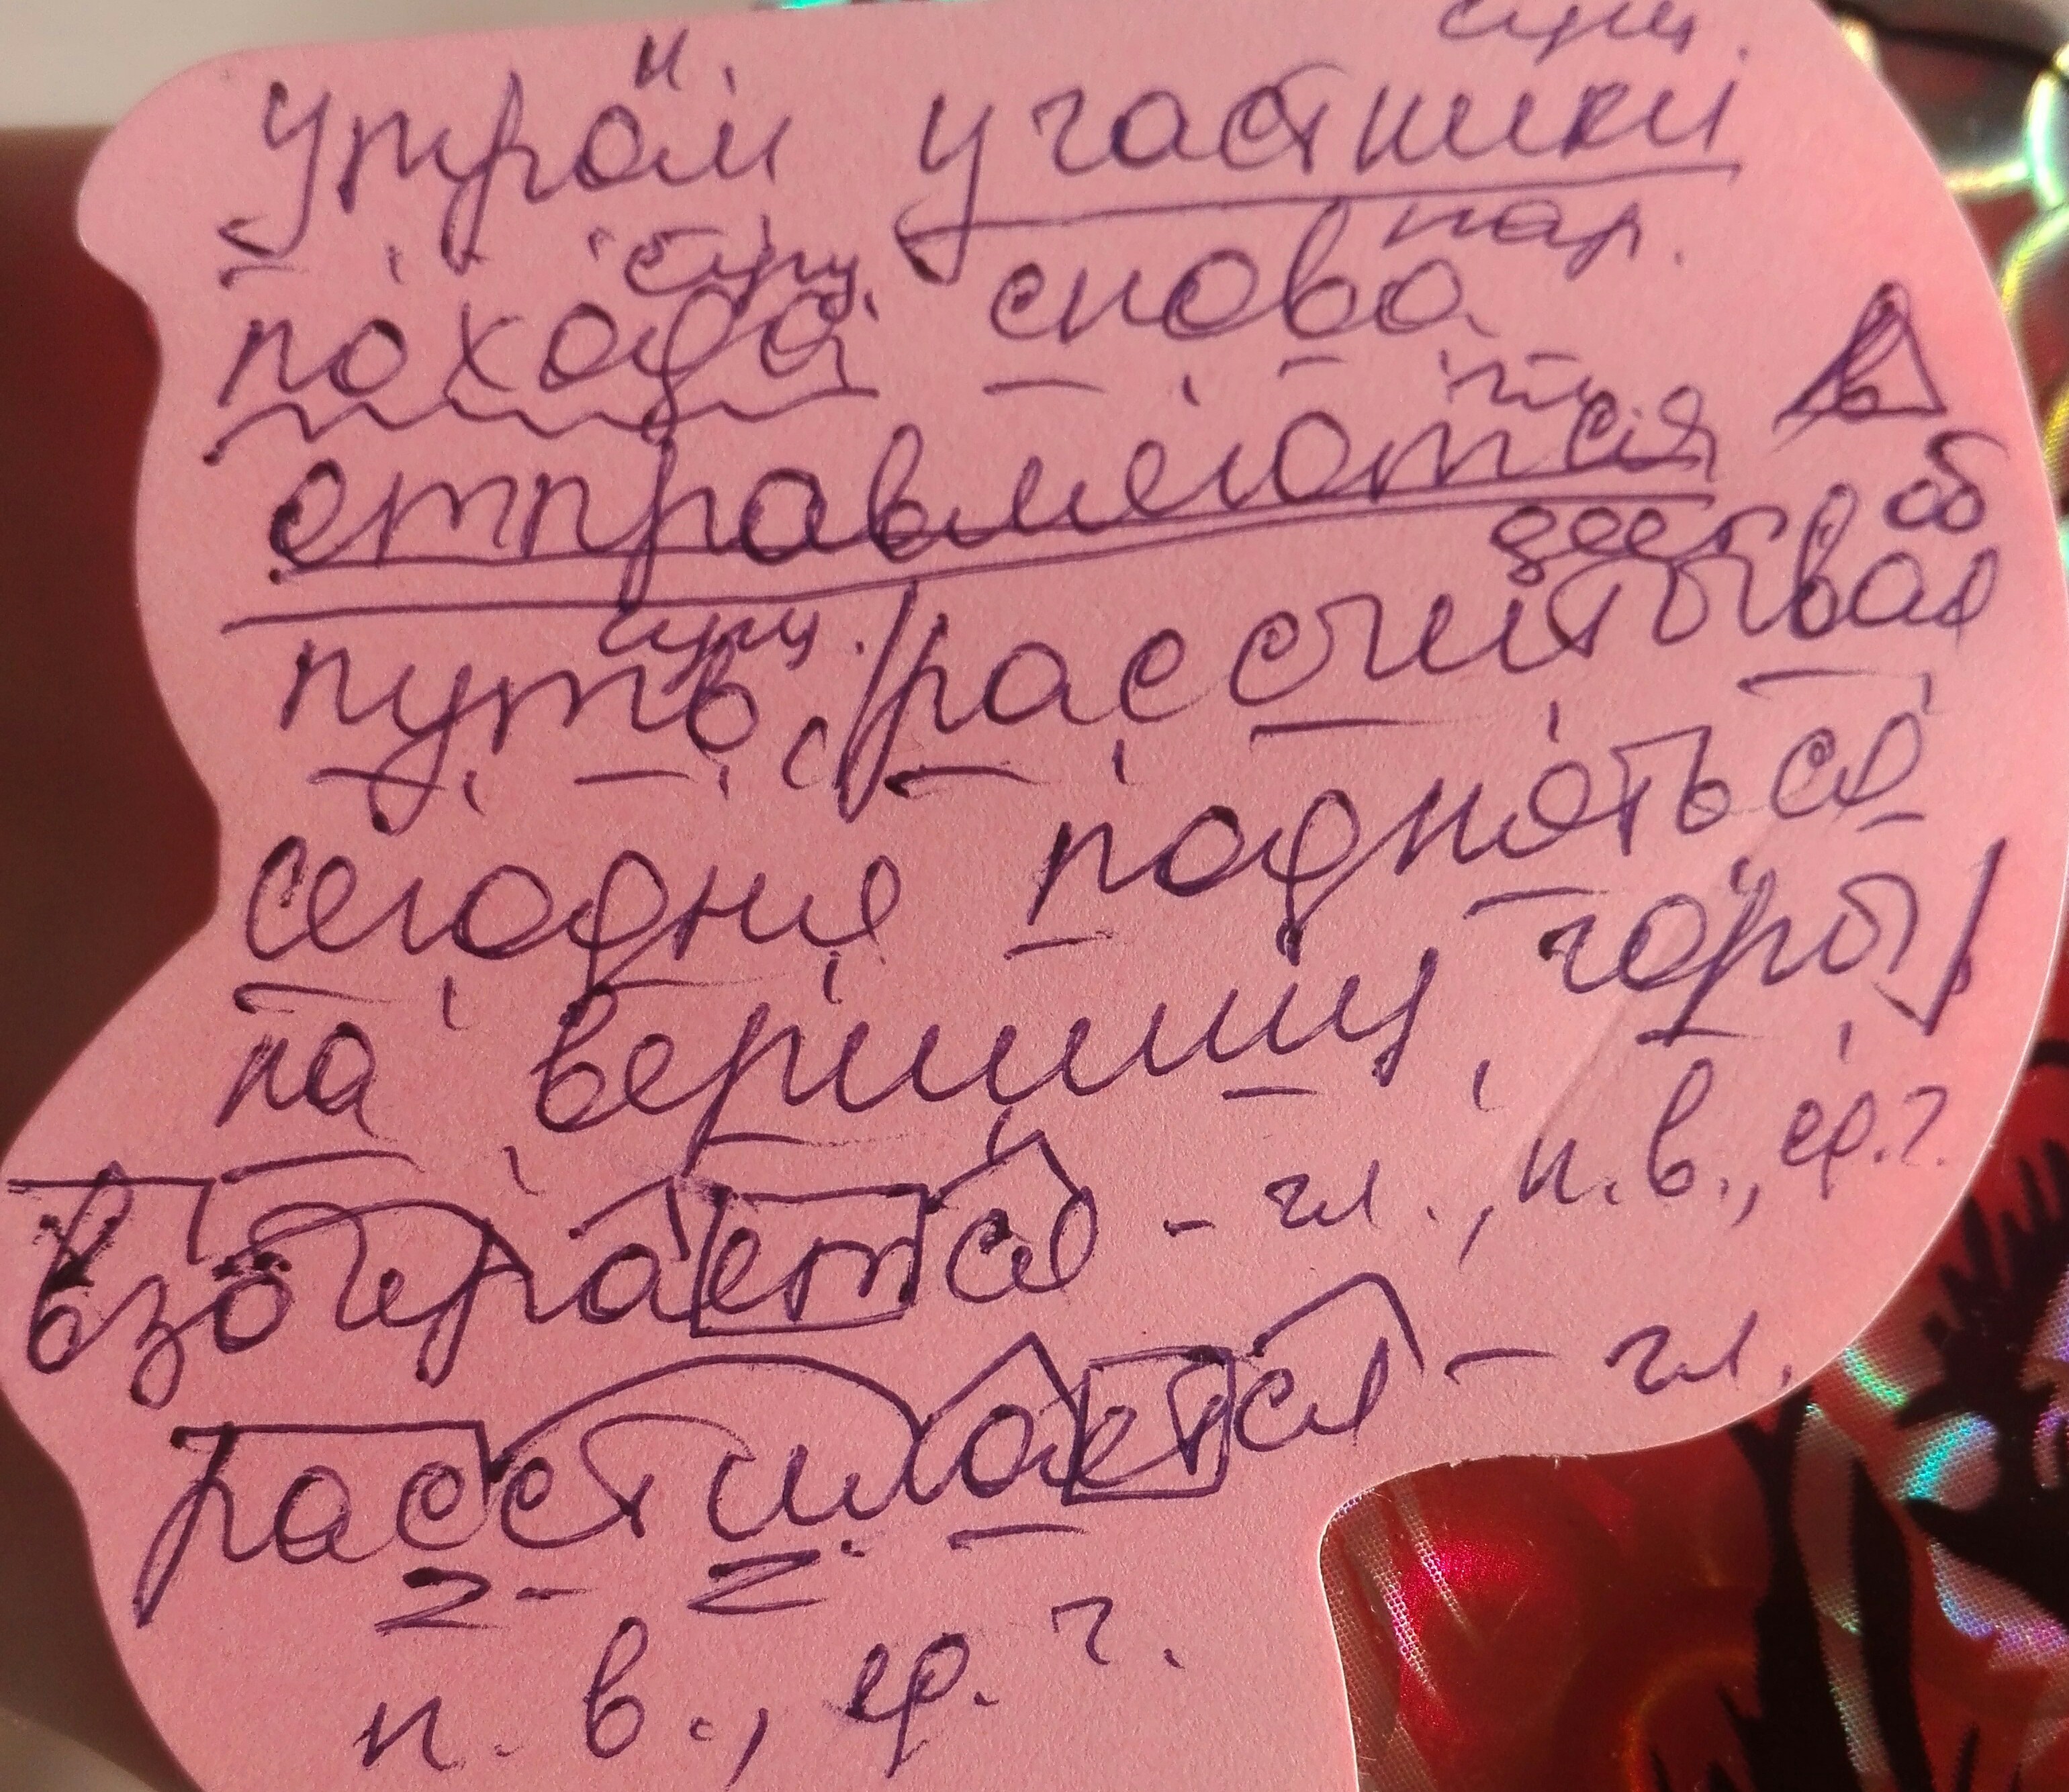 сущ.
н.
Утром участники
сущ. нар.
похода снова
гл.
отправляются в
дееп. об
сущ.
путь, рассчитывая
сегодня подняться
на вершину горы
взбирается - гл., н.в., ед.ч.
расстилается - гл.
н. в., ед. ч.